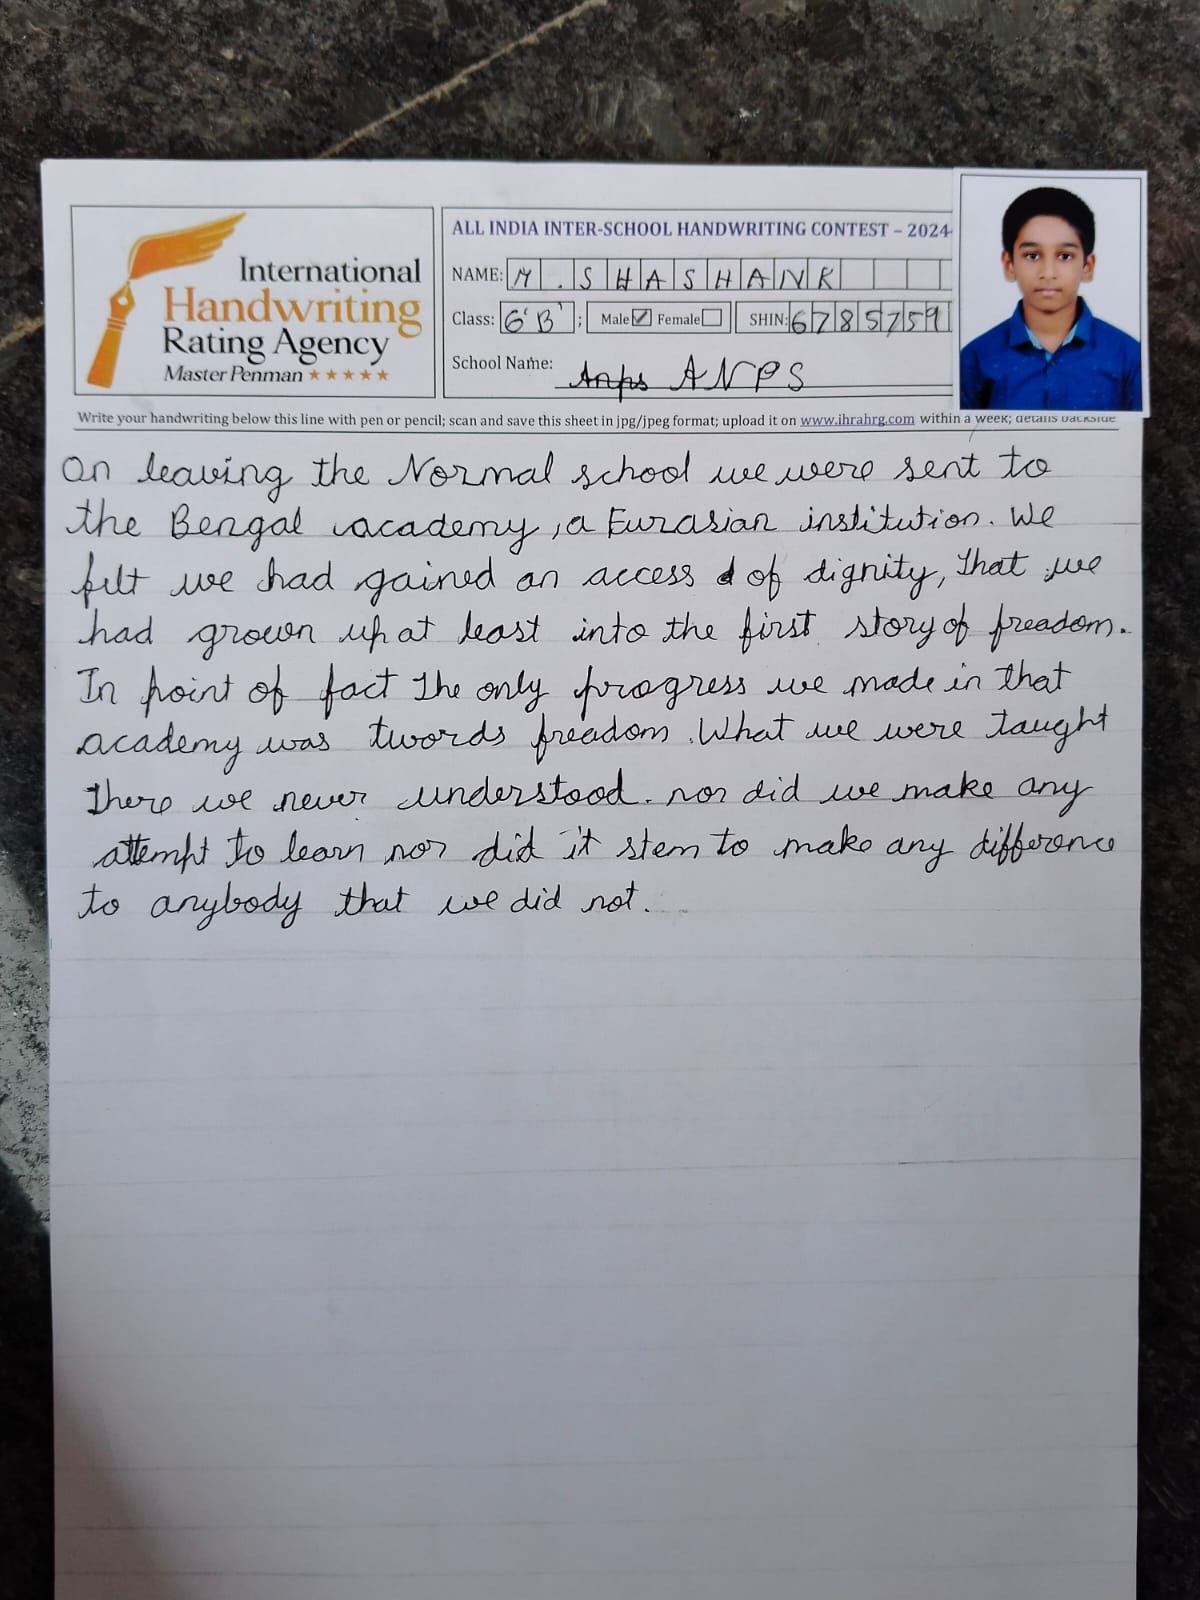 International
Handwriting
Rating Agency
Master Penman ★★★★★
ALL INDIA INTER-SCHOOL HANDWRITING CONTEST – 2024
NAME: M . SHASHANK
Class: 6'B' ; Male ☑ Female ☐ SHIN: 6785759
School Name: Anps ANPS
Write your handwriting below this line with pen or pencil; scan and save this sheet in jpg/jpeg format; upload it on www.ihrahrg.com within a week; details backside
On leaving the Normal school we were sent to
the Bengal academy, a Eurasian institution. We
felt we had gained an access of dignity, that we
had grown up at least into the first story of freadom.
In point of fact the only progress we made in that
academy was twords freadom. What we were taught
there we never understood. nor did we make any
attempt to learn nor did it stem to make any difference
to anybody that we did not.